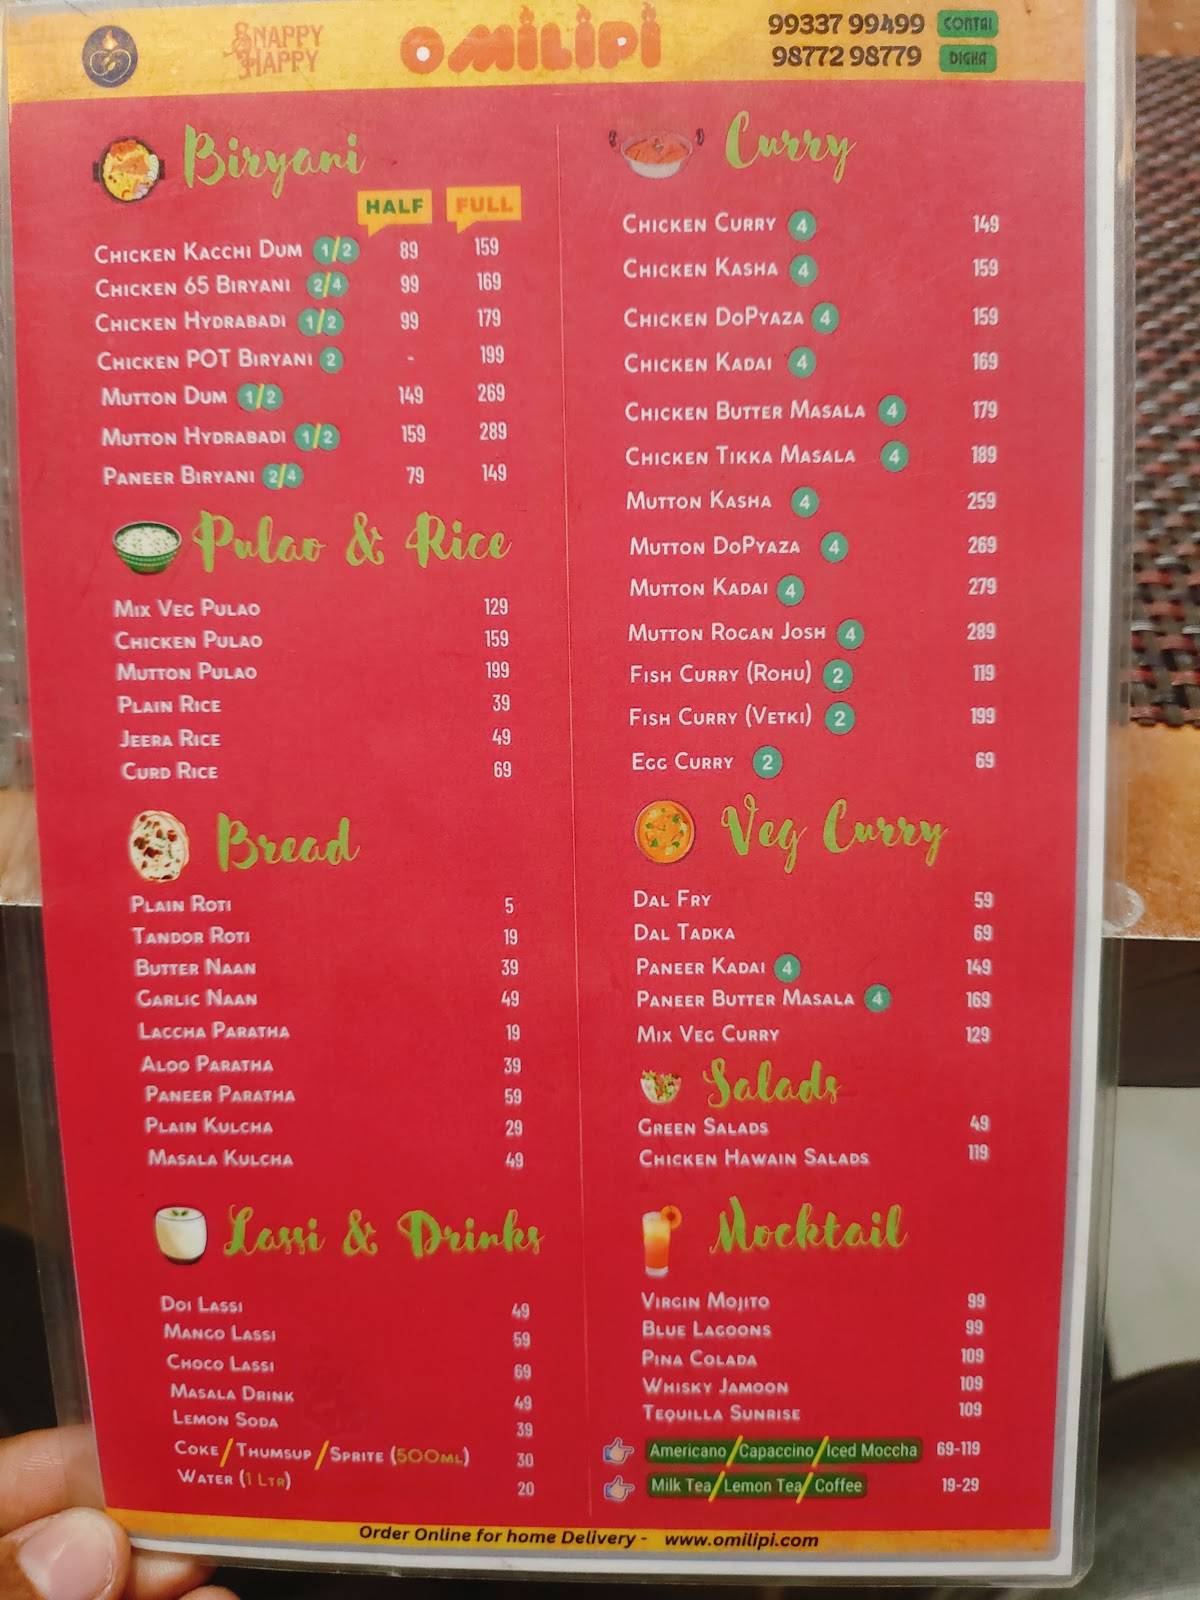 SNAPPY HAPPY
OMILIPI
99337 99499 CONTAI
98772 98779 DIGHA
Biryani
HALF FULL
Chicken Kacchi Dum 1/2 89 159
Chicken 65 Biryani 2/4 99 169
Chicken Hydrabadi 1/2 99 179
Chicken POT Biryani 2 - 199
Mutton Dum 1/2 149 269
Mutton Hydrabadi 1/2 159 289
Paneer Biryani 2/4 79 149
Pulao & Rice
Mix Veg Pulao 129
Chicken Pulao 159
Mutton Pulao 199
Plain Rice 39
Jeera Rice 49
Curd Rice 69
Bread
Plain Roti 5
Tandor Roti 19
Butter Naan 39
Garlic Naan 49
Laccha Paratha 19
Aloo Paratha 39
Paneer Paratha 59
Plain Kulcha 29
Masala Kulcha 49
Lassi & Drinks
Doi Lassi 49
Mango Lassi 59
Choco Lassi 69
Masala Drink 49
Lemon Soda 39
Coke/Thumsup/Sprite (500ml) 30
Water (1 Ltr) 20
Curry
Chicken Curry 4 149
Chicken Kasha 4 159
Chicken DoPyaza 4 159
Chicken Kadai 4 169
Chicken Butter Masala 4 179
Chicken Tikka Masala 4 189
Mutton Kasha 4 259
Mutton DoPyaza 4 269
Mutton Kadai 4 279
Mutton Rogan Josh 4 289
Fish Curry (Rohu) 2 119
Fish Curry (Vetki) 2 199
Egg Curry 2 69
Veg Curry
Dal Fry 59
Dal Tadka 69
Paneer Kadai 4 149
Paneer Butter Masala 4 169
Mix Veg Curry 129
Salads
Green Salads 49
Chicken Hawain Salads 119
Mocktail
Virgin Mojito 99
Blue Lagoons 99
Pina Colada 109
Whisky Jamoon 109
Tequilla Sunrise 109
Americano/Capaccino/Iced Moccha 69-119
Milk Tea/Lemon Tea/Coffee 19-29
Order Online for home Delivery - www.omilipi.com